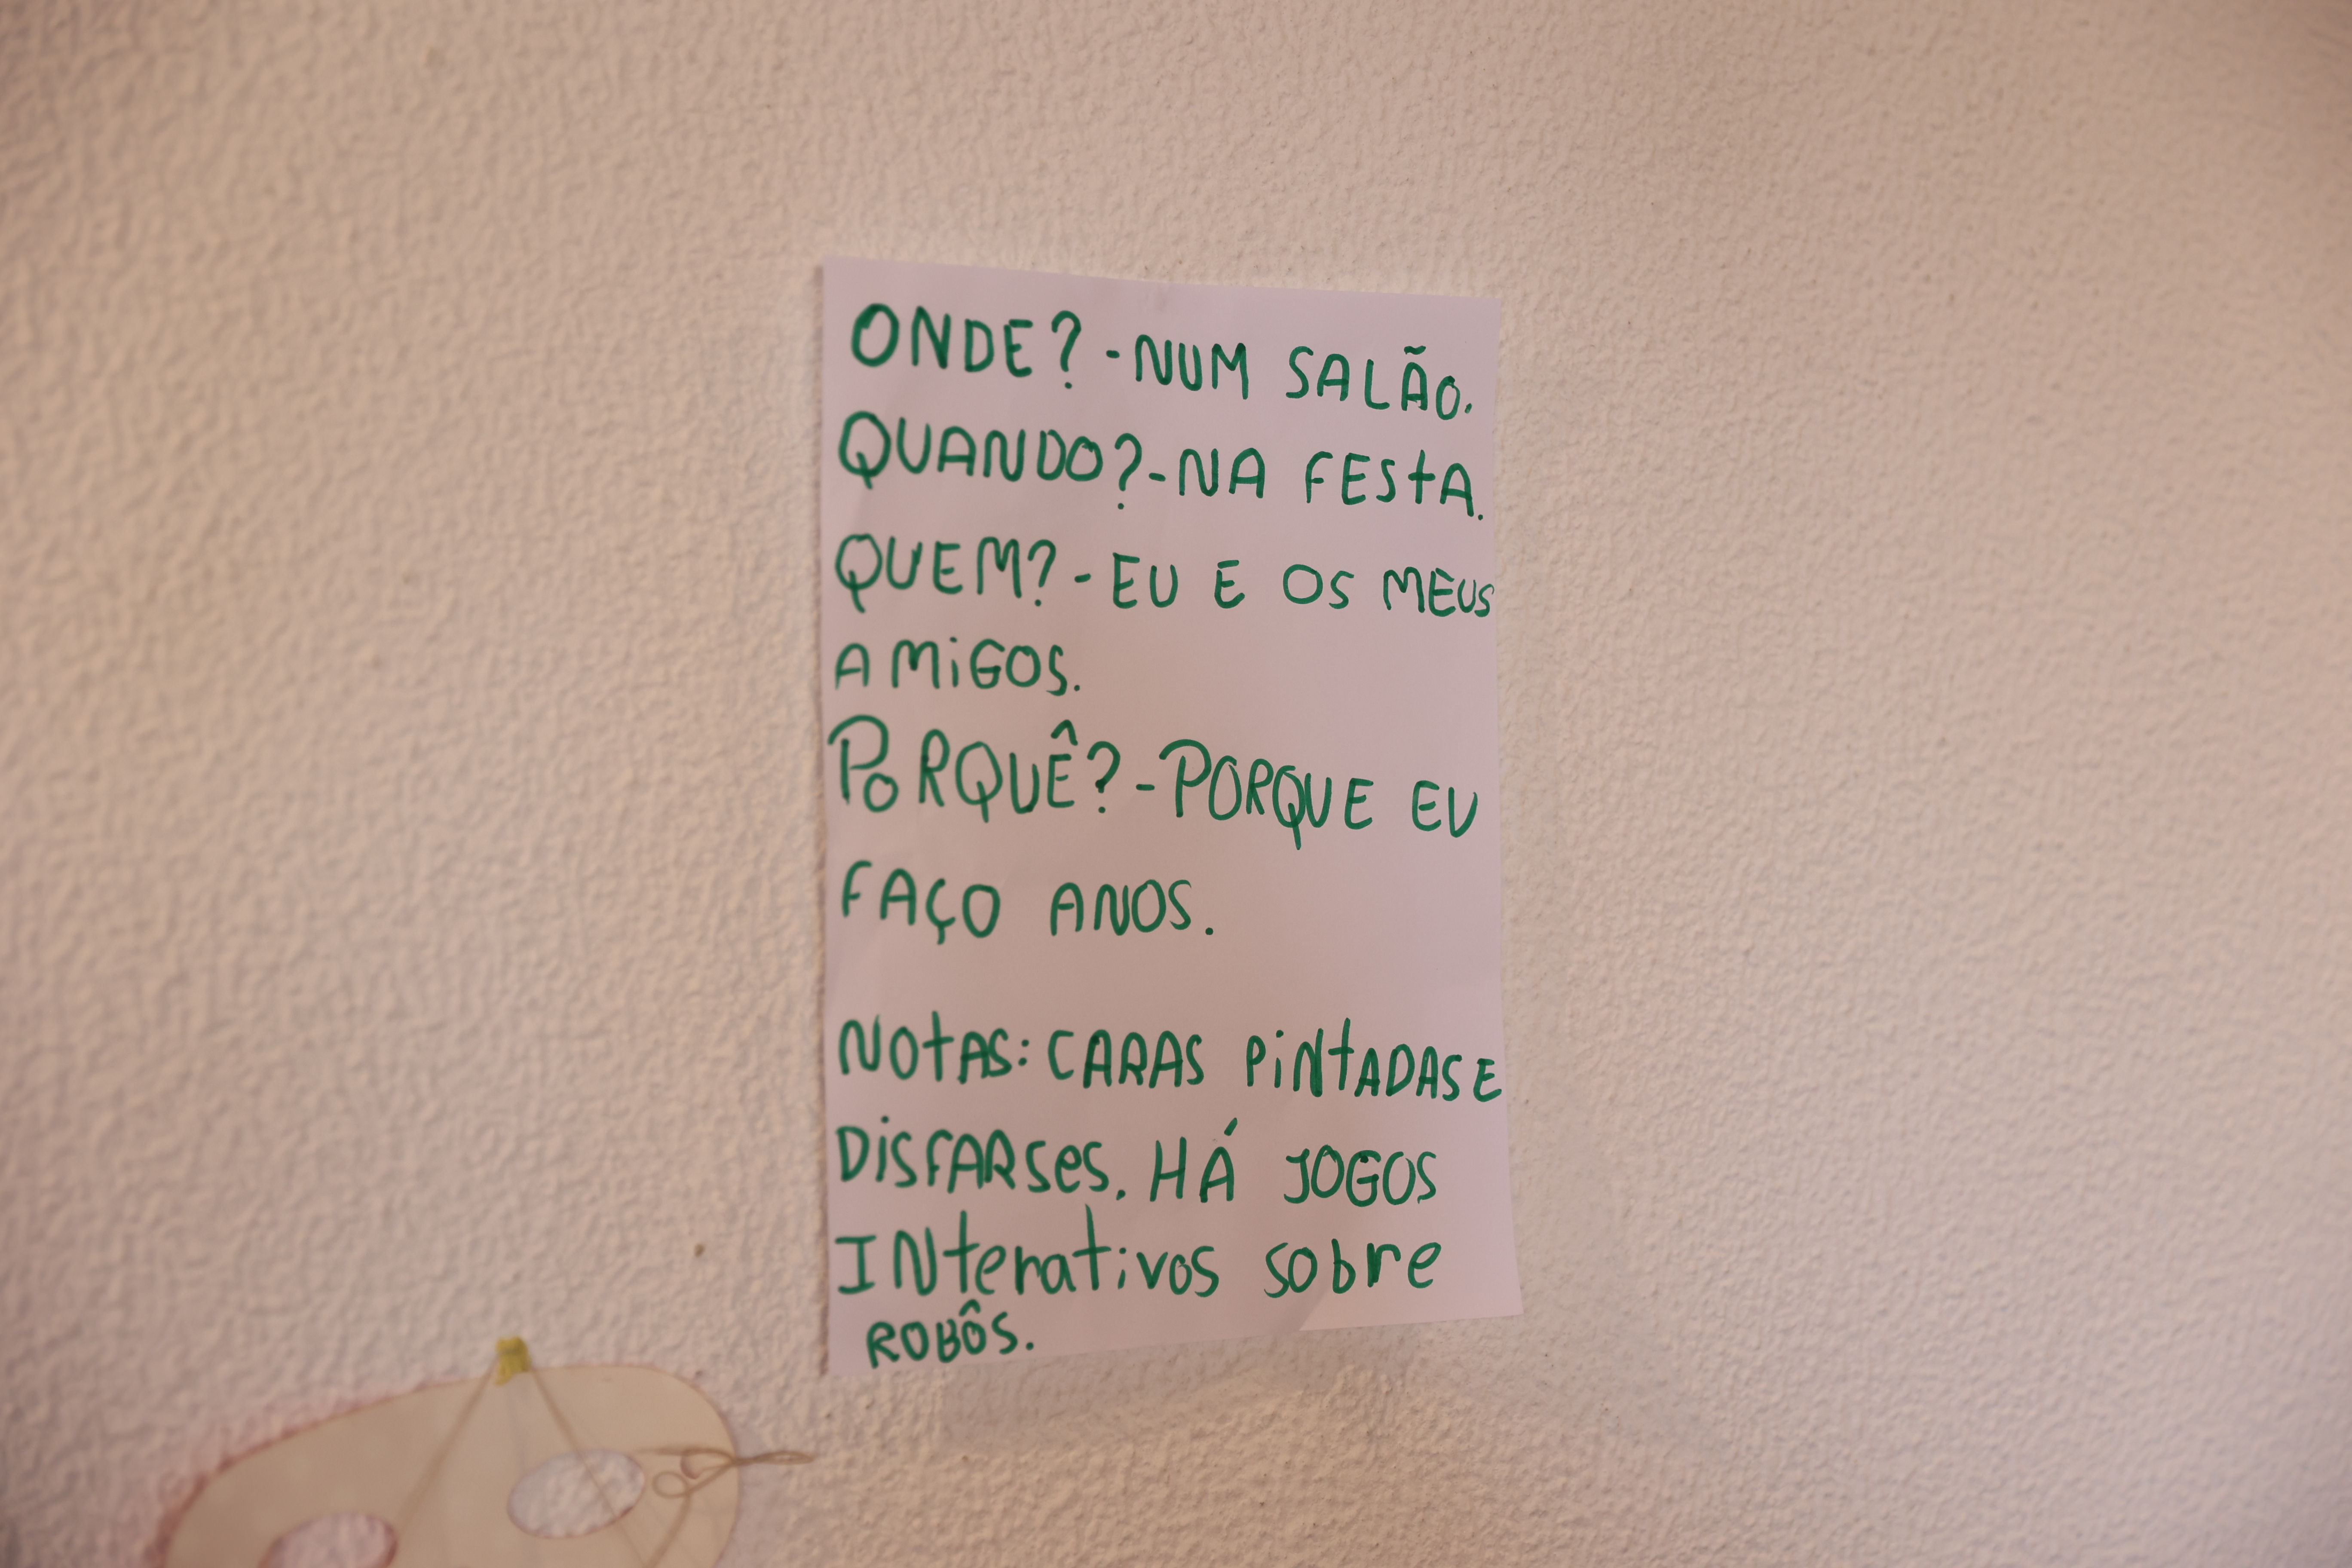 ONDE? - NUM SALÃO.
QUANDO? - NA FESTA.
QUEM? - EU E OS MEUS
AMIGOS.
PORQUÊ? - PORQUE EU
FAÇO ANOS.
NOTAS: CARAS PINTADAS E
DISFARSES. HÁ JOGOS
INterativos sobre
ROBÔS.